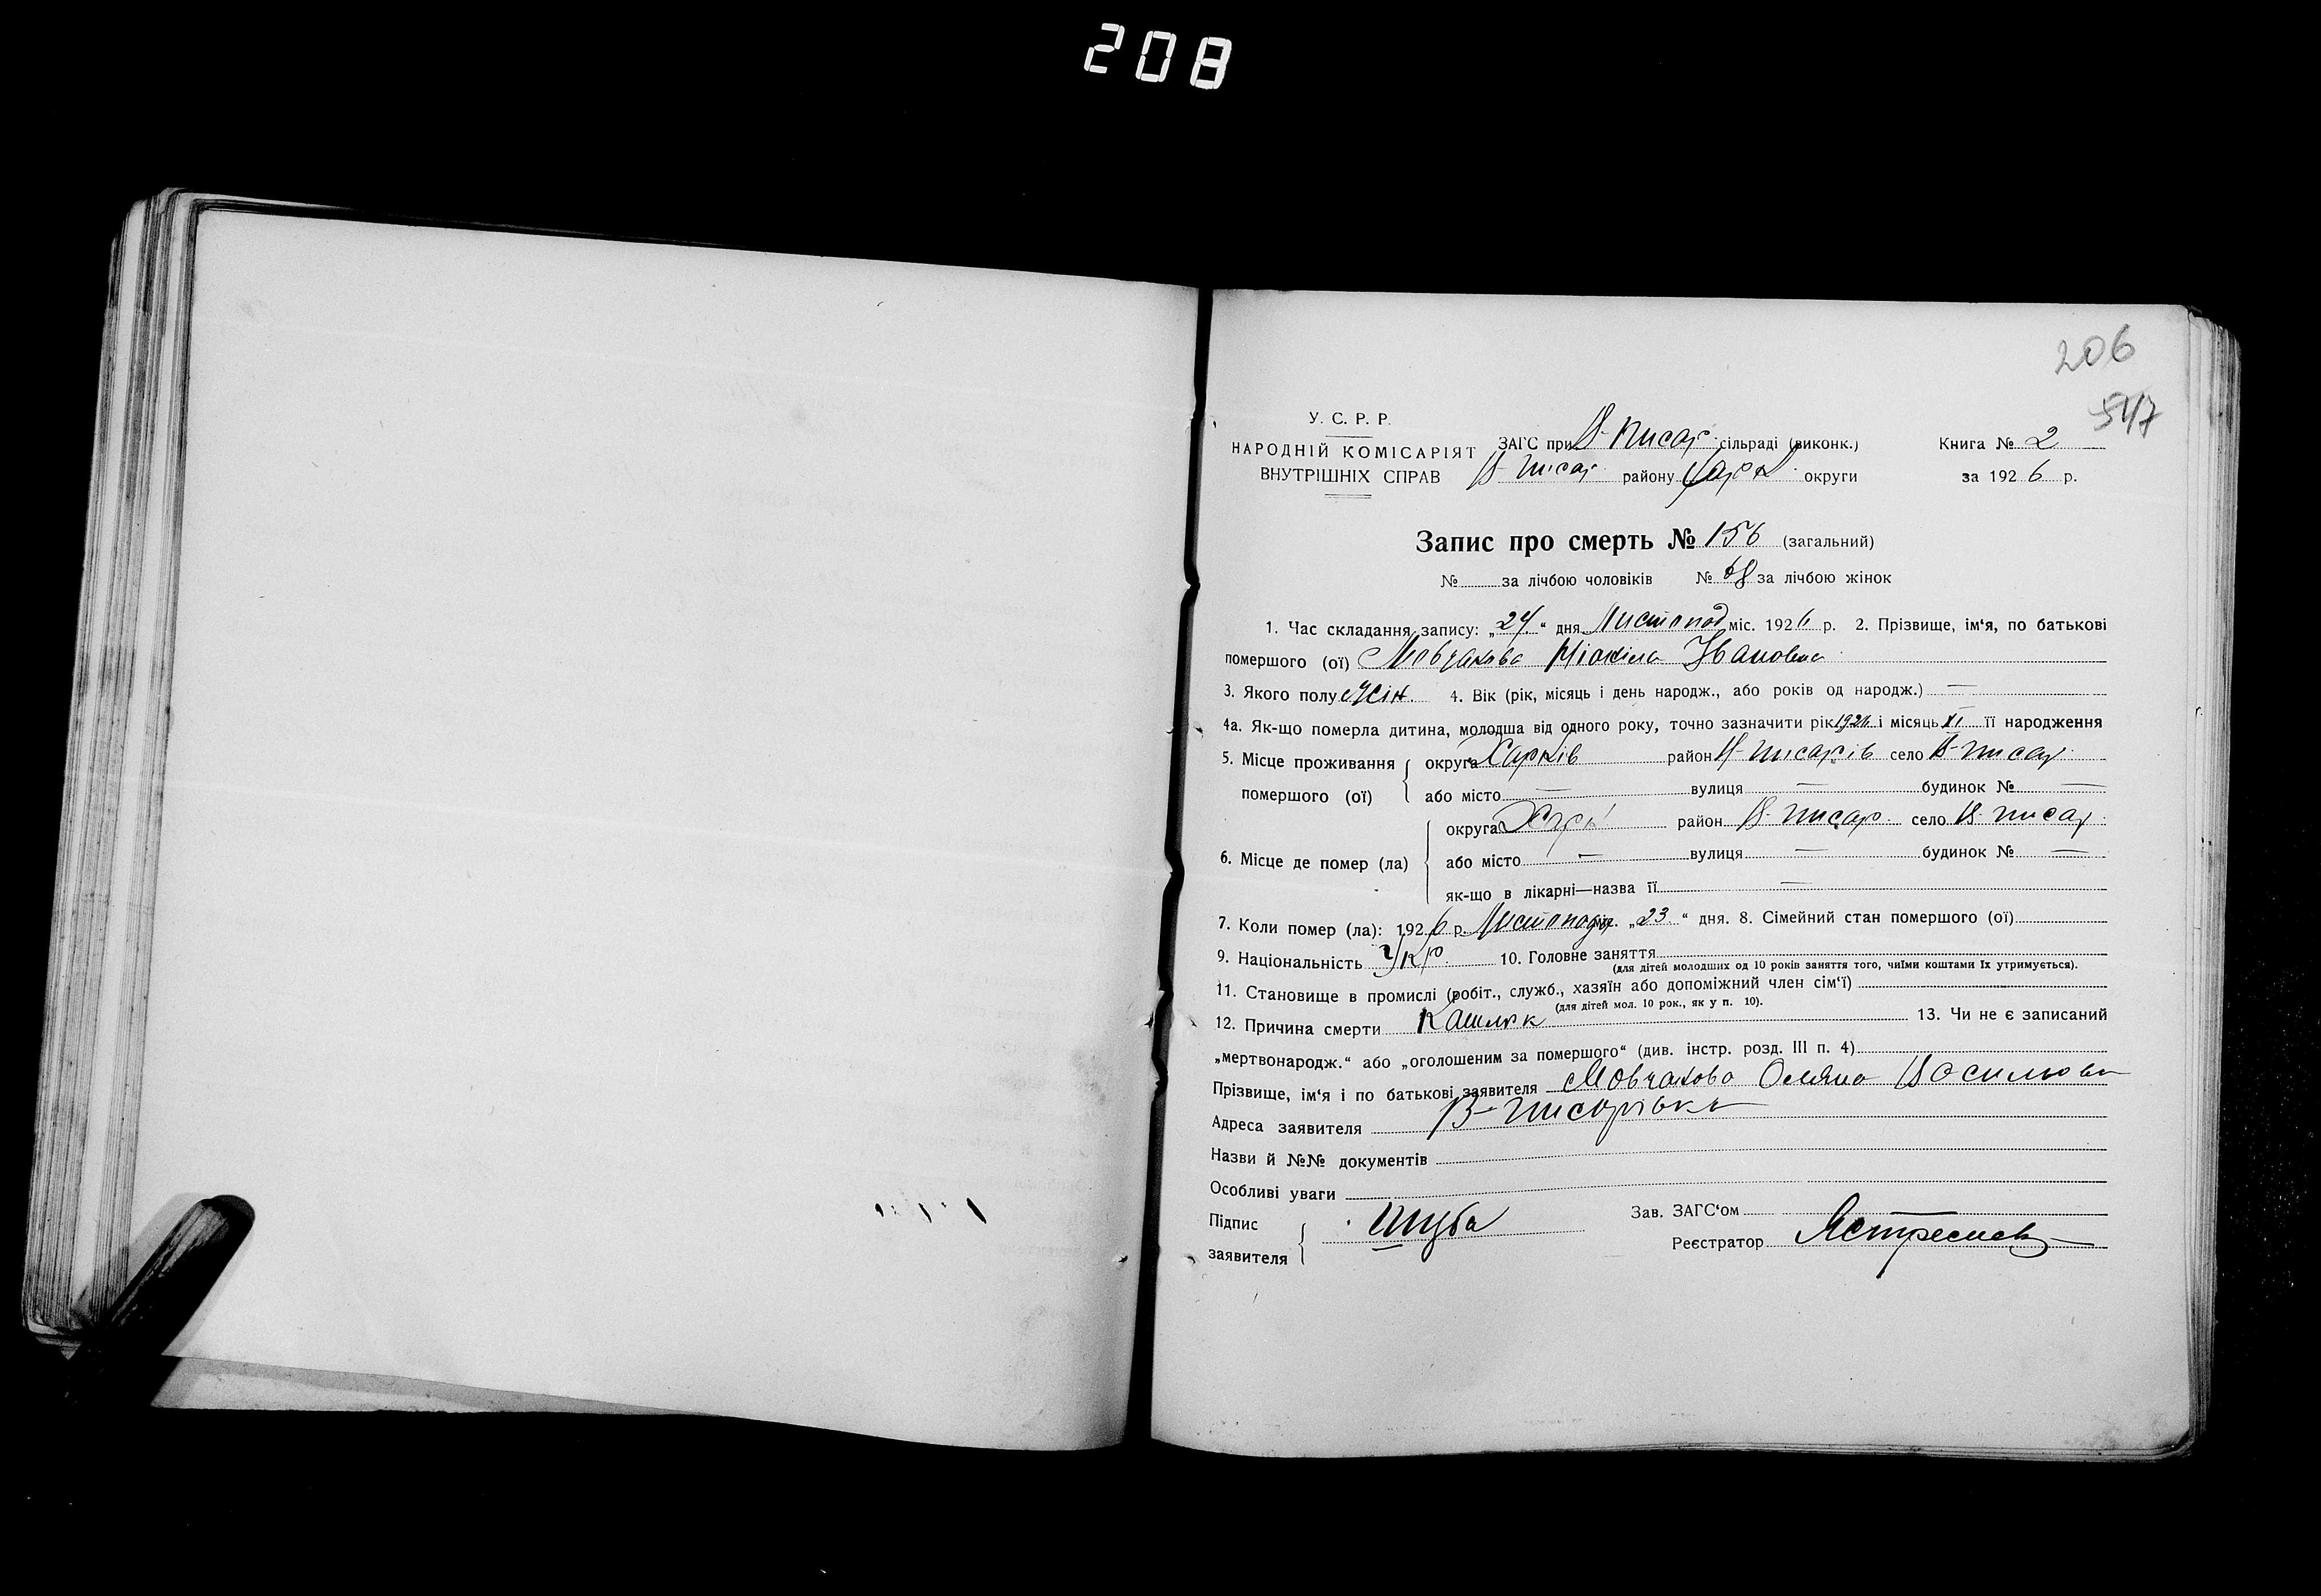 208
206
547
У. С. Р. Р.
НАРОДНІЙ КОМІСАРІЯТ
ВНУТРІШНІХ СПРАВ
ЗАГС при В-Писар. сільраді (виконк.)
В-Писар. району Харк. округи
Книга № 2
за 1926 р.
Запис про смерть № 156 (загальний)
№ за лічбою чоловіків № 68 за лічбою жінок
1. Час складання запису: „24“ дня Листопад міс. 1926 р. 2. Прізвище, ім‘я, по батькові
помершого (ої) Мовчанова Ивановна
3. Якого полу жін. 4. Вік (рік, місяць і день народж., або років од народж.) —
4а. Як-що померла дитина, молодша від одного року, точно зазначити рік 1926 і місяць XI її народження
5. Місце проживання помершого (ої) округа Харків район В-Писарів село В-Писар.
або місто — вулиця — будинок № —
6. Місце де помер (ла) округа Харк район В-Писар. село В-Писар.
або місто — вулиця — будинок № —
як-що в лікарні—назва її —
7. Коли помер (ла): 1926 р. Листопад міс. „23“ дня. 8. Сімейний стан помершого (ої)
9. Національність Укр. 10. Головне заняття
(для дітей молодших од 10 років заняття того, чиїми коштами їх утримується).
11. Становище в промислі (робіт., служб., хазяїн або допоміжний член сім‘ї)
(для дітей мол. 10 рок., як у п. 10).
12. Причина смерти Кашлюк 13. Чи не є записаний
„мертвонародж.“ або „оголошеним за помершого“ (див. інстр. розд. III п. 4)
Прізвище, ім‘я і по батькові заявителя Мовчанова
Адреса заявителя В-Писарівка
Назви й №№ документів
Особливі уваги
Підпис заявителя Шуба
Зав. ЗАГС‘ом —
Реєстратор